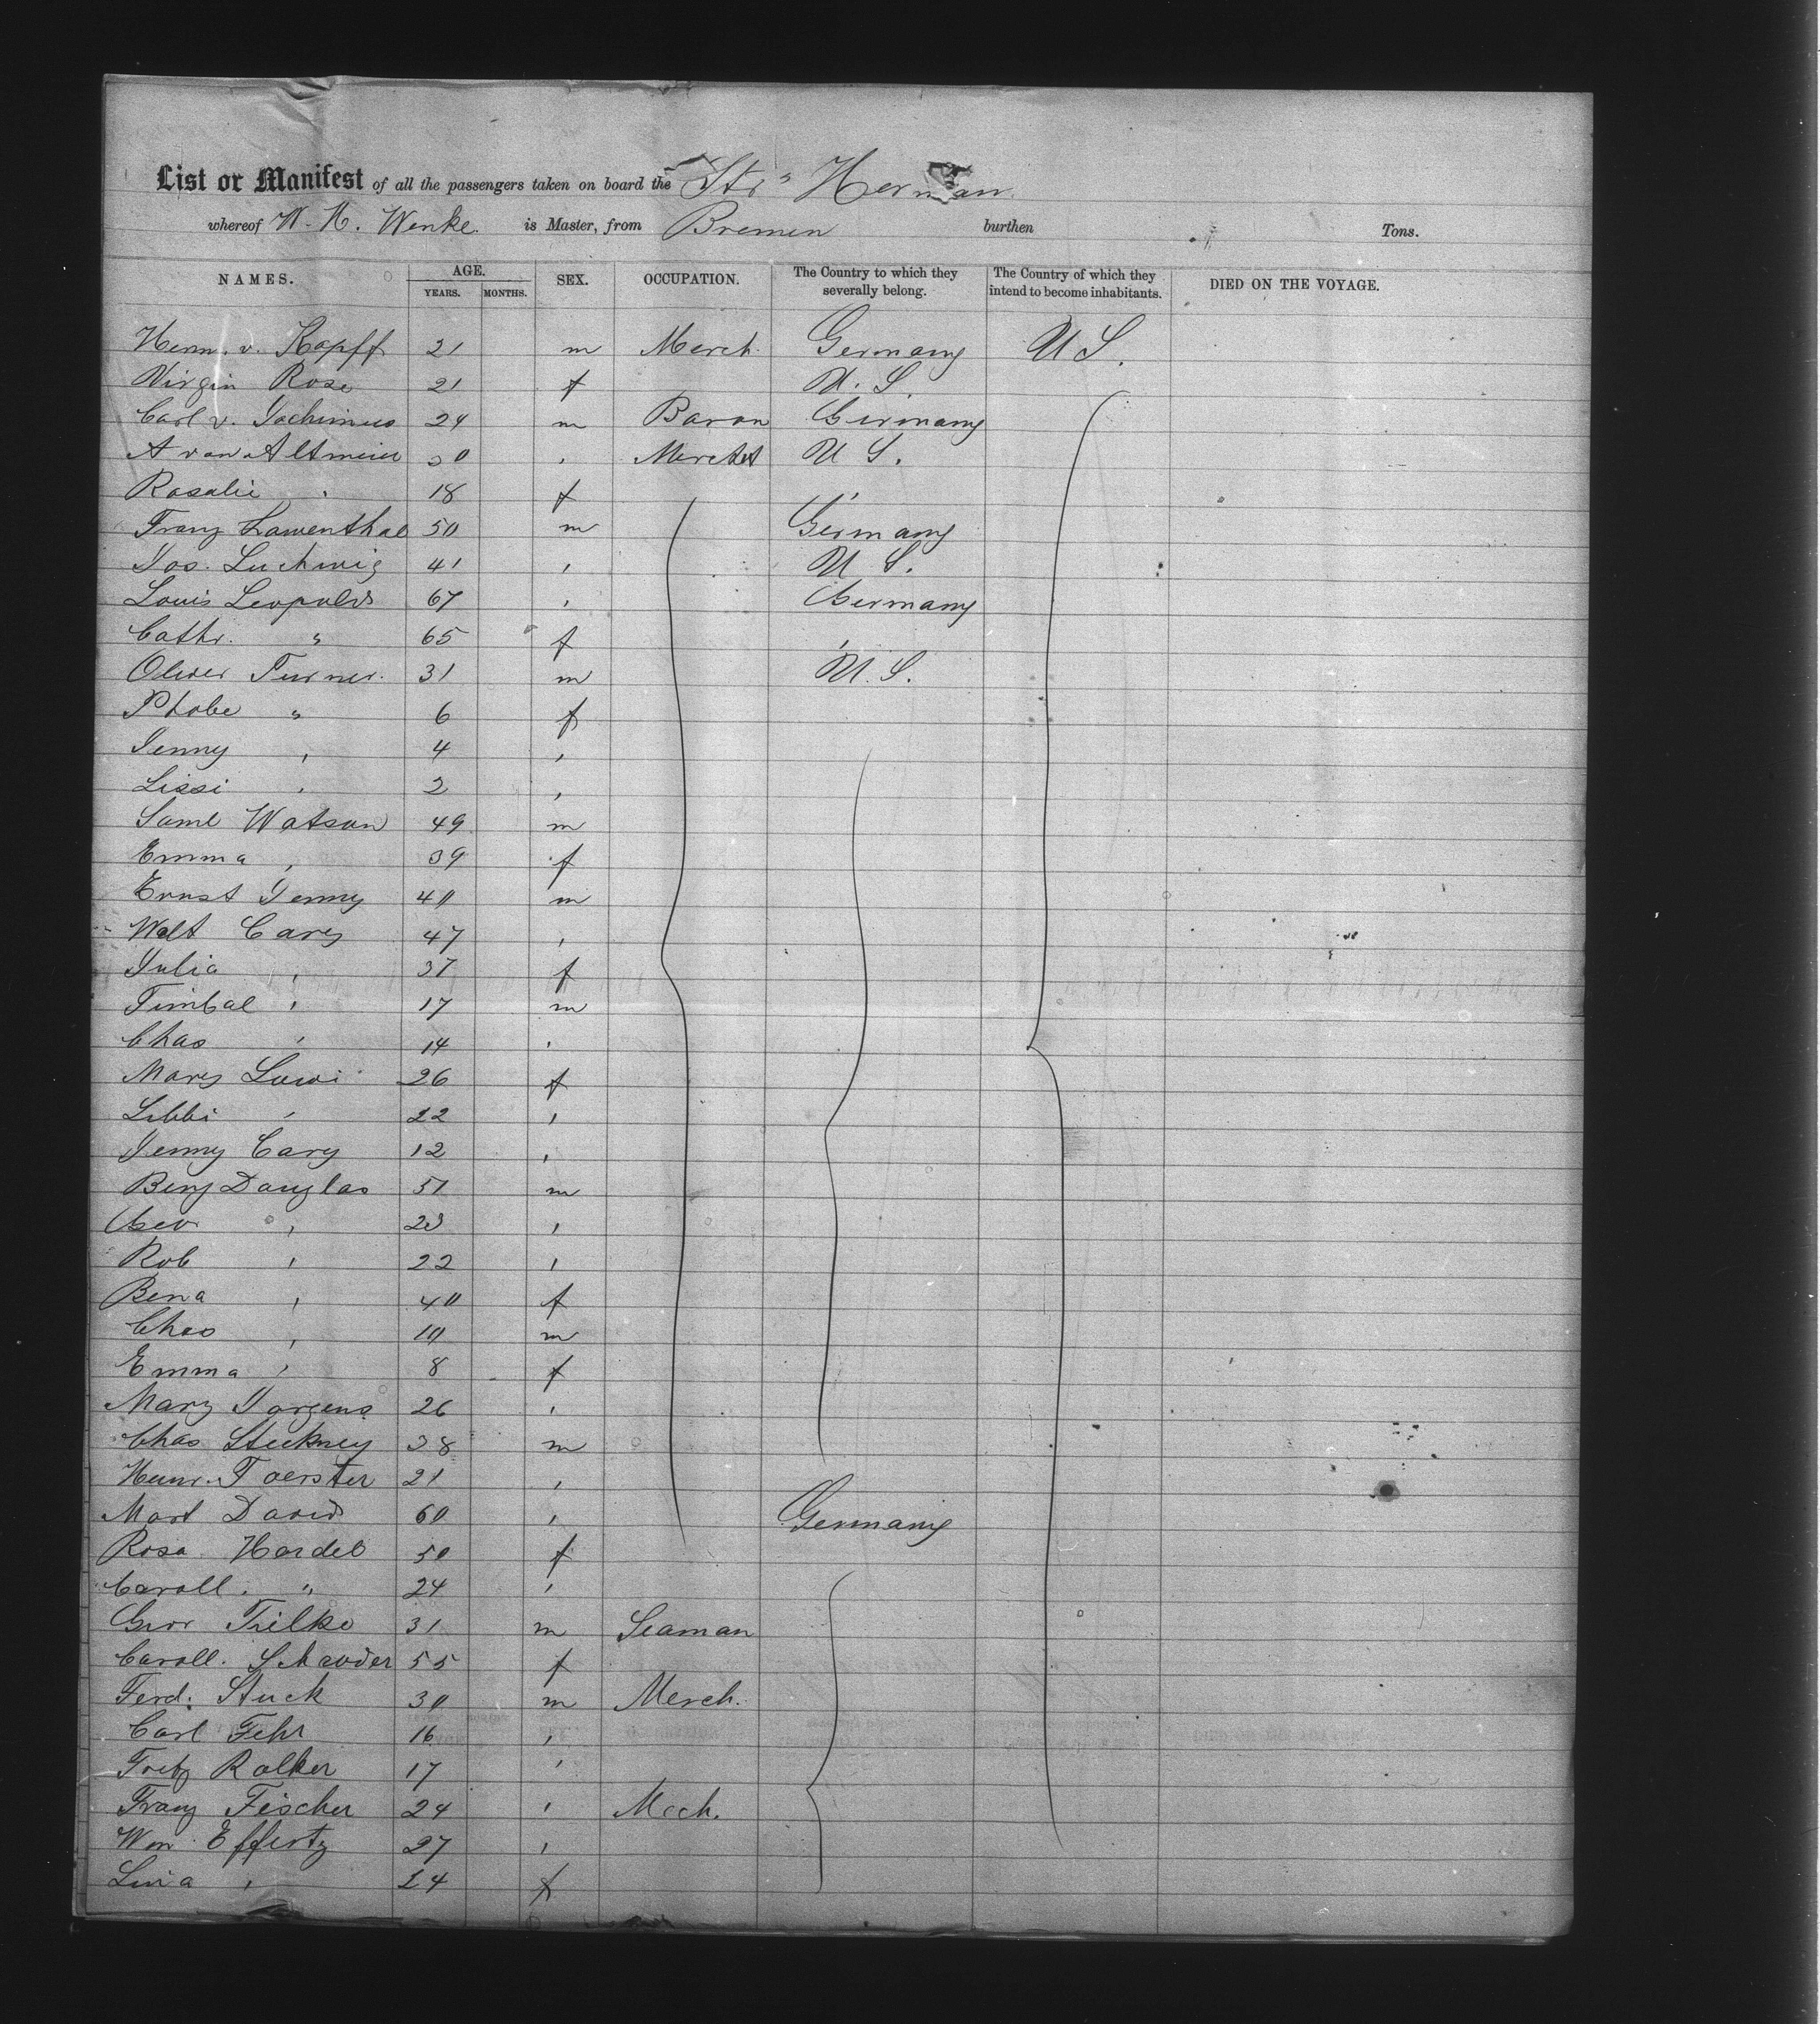 List or Manifest of all the passengers taken on board the Str " Herman
whereof W. H. Wenke. is Master, from Bremen burthen Tons.
NAMES. AGE. YEARS. MONTHS. SEX. OCCUPATION. The Country to which they severally belong. The Country of which they intend to become inhabitants. DIED ON THE VOYAGE.
Herm. v. Kapff 21 m Merch. Germany U S.
Virgin Rose 21 f U. S.
Carl v. Jochimus 24 m Baron Germany
A van Altmeier 30 , Mercht U S.
Rosalie , 18 f ,
Franz Lawenthal 50 m Germany
Jos. Luchwig 41 , U S.
Louis Leopolds 67 , Germany
Cathr. " 65 f ,
Oliver Turner. 31 m U. S.
Phobe " 6 f
Jenny , 4 ,
Lissi , 2 ,
Saml Watson 49 m
Emma , 39 f
Ernst Jenny 40 m
Walt Cary 47 ,
Julia , 37 f
Timbal , 17 m
Chas , 14 ,
Mary Lowi 26 f
Libbi , 22 ,
Jenny Cary 12 ,
Benj Douglas 51 m
Geo , 23 ,
Rob , 22 ,
Bena , 40 f
Chas , 10 m
Emma , 8 f
Mary Jorgens 26 ,
Chas Stickney 38 m
Heinr. Foerster 21 ,
Mart David 60 , Germany
Rosa Hardel 50 f
Caroll. " 24 ,
Geor Tielke 31 m Seaman
Caroll. Schrader 55 f
Ferd. Stuck 30 m Merch.
Carl Fehr 16 ,
Fritz Ralker 17 ,
Franz Fischer 24 , Mech.
Wm Effertz 27 ,
Lina , 24 f